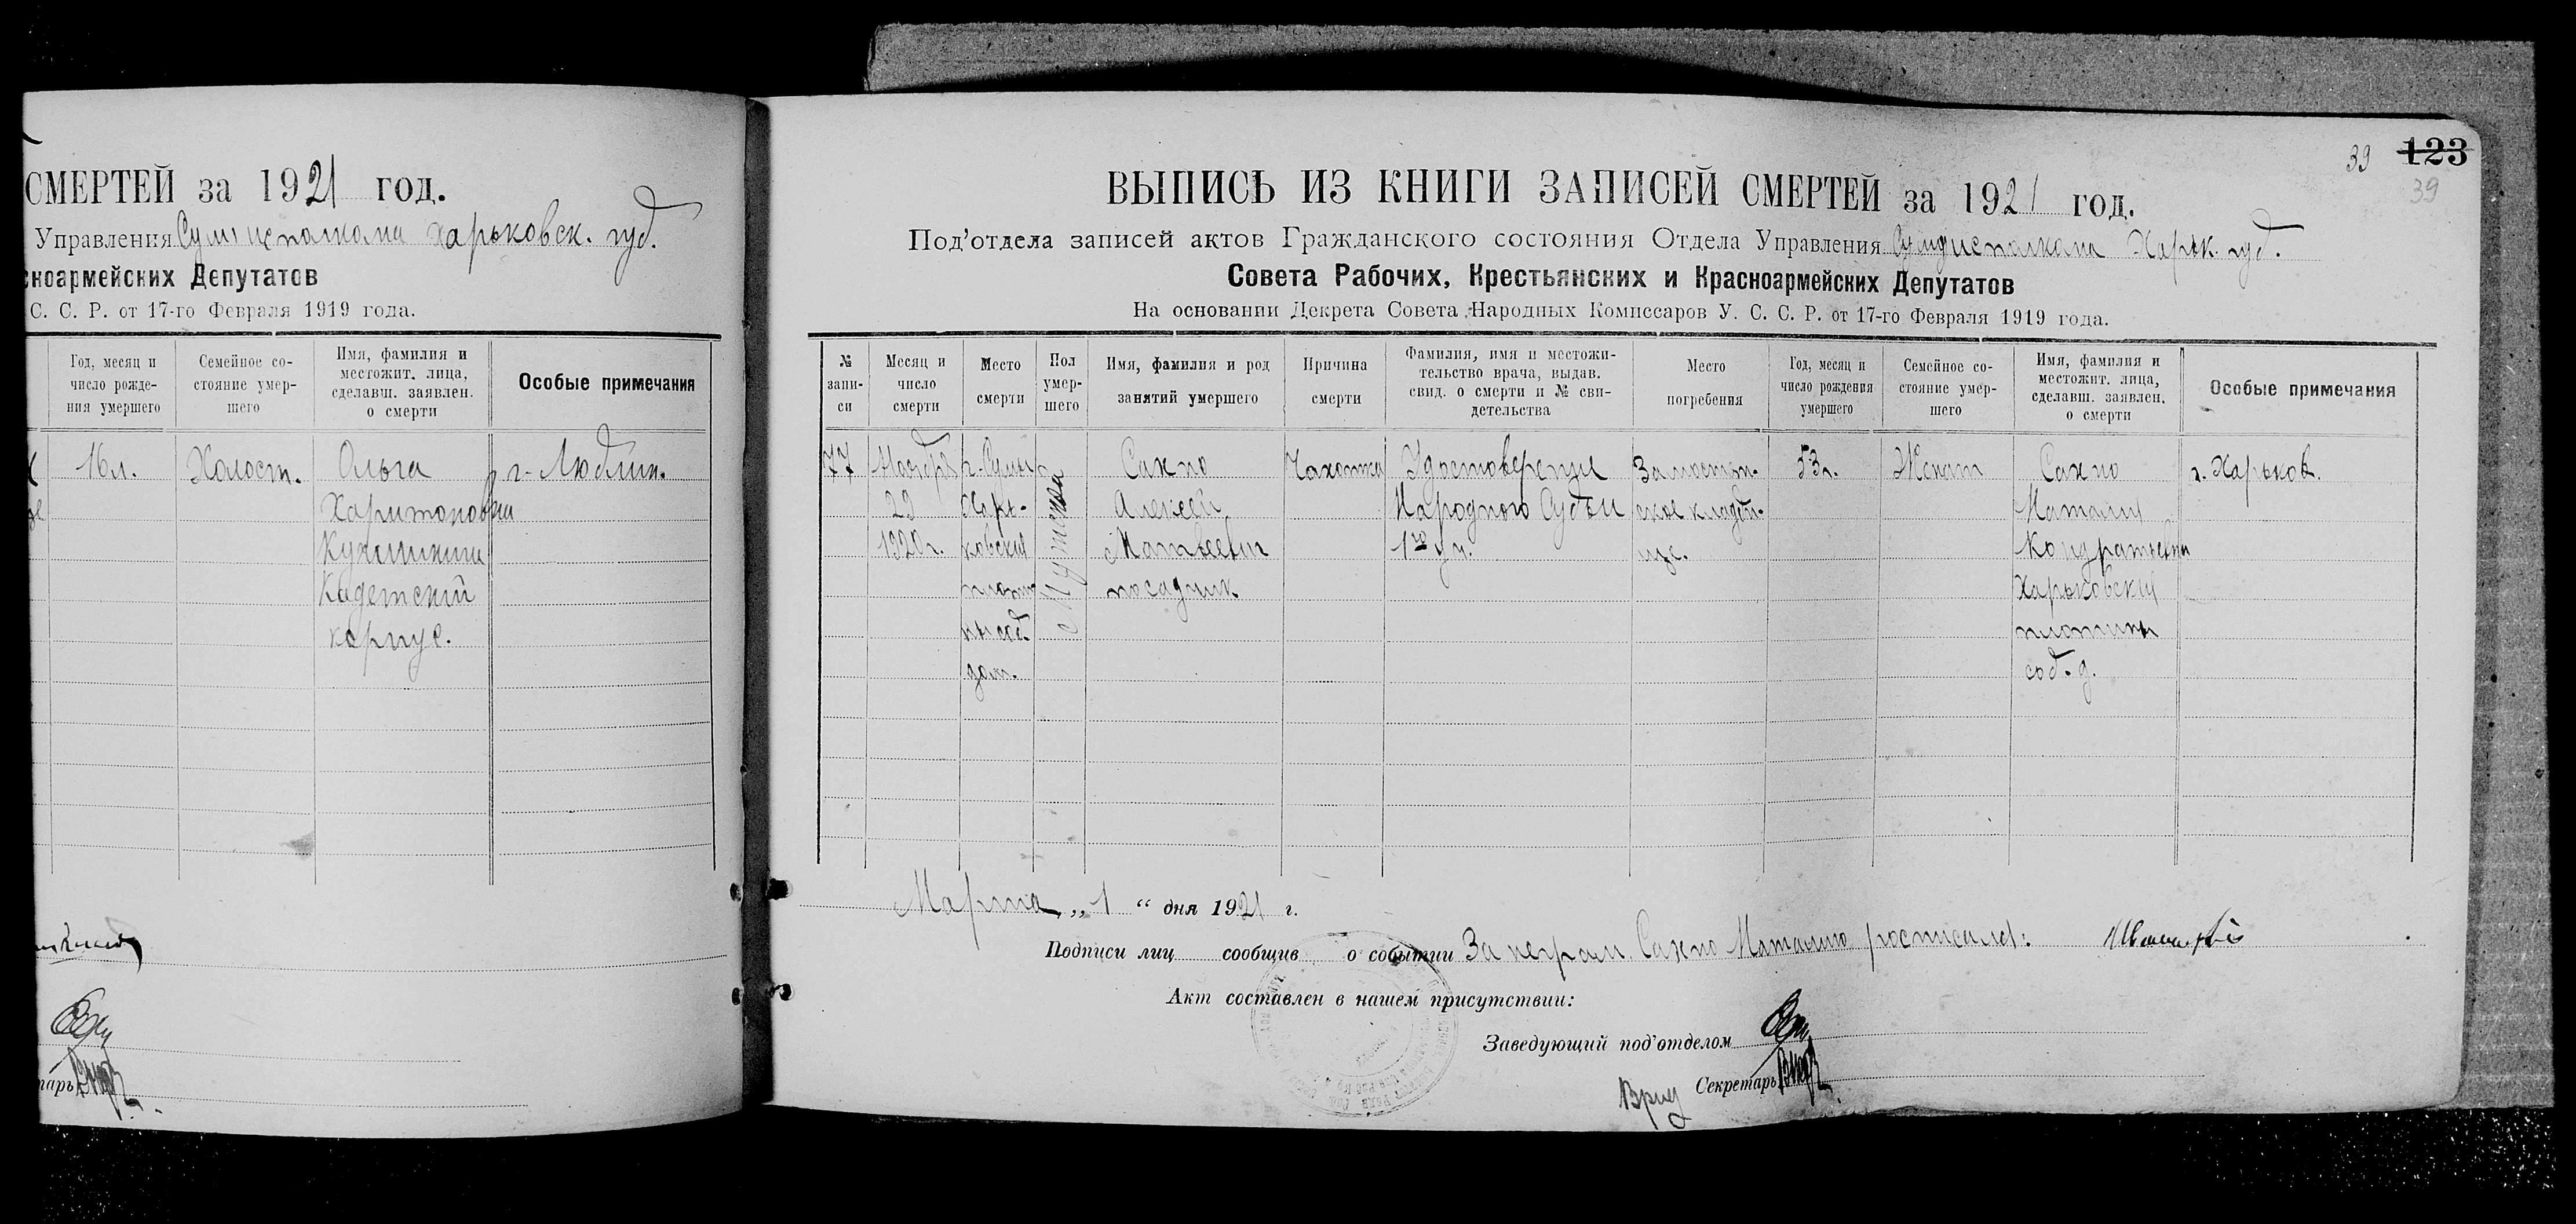 СМЕРТЕЙ за 1921 год.
Управления Сумисполкома Харьковск. губ.
сноармейских Депутатов
С. С. Р. от 17-го Февраля 1919 года.
Год, месяц и
число рожде-
ния умершего
Семейное со-
стояние умер-
шего
Имя, фамилия и
местожит. лица,
сделавш. заявлен.
о смерти
Особые примечания
16 л.
Холост.
Ольга
Харитоновна
Кадетский
корпус.
г. Люблин.
39
123
39
ВЫПИСЬ ИЗ КНИГИ ЗАПИСЕЙ СМЕРТЕЙ за 1921 год.
Под'отдела записей актов Гражданского состояния Отдела Управления Сумуисполкома Харьк. губ.
Совета Рабочих, Крестьянских и Красноармейских Депутатов
На основании Декрета Совета Народных Комиссаров У. С. С. Р. от 17-го Февраля 1919 года.
№
запи-
си
Месяц и
число
смерти
Место
смерти
Пол
умер-
шего
Имя, фамилия и род
занятий умершего
Причина
смерти
Фамилия, имя и местожи-
тельство врача, выдав.
свид. о смерти и № сви-
детельства
Место
погребения
Год, месяц и
число рождения
умершего
Семейное со-
стояние умер-
шего
Имя, фамилия и
местожит. лица,
сделавш. заявлен.
о смерти
Особые примечания
77
Ноября
29
1920 г.
г. Сумы
Харь-
ковския
плоти-
ны соб.
дом.
Мужской
Сахно
Алексей
Матвеевич
посадчик
Чахотка
Удостоверение
Народного Судьи
1го уч.
Замостьян-
ское кладби-
ще.
53 г.
Женат
Сахно
Наталия
Кондратьевна
Харьковския
плотины
соб. д.
г. Харьков.
Марта „ 1 “ дня 1921 г.
Подписи лиц сообщив о событии За неграм. Сахно Наталию росписался:
Акт составлен в нашем присутствии:
Заведующий под'отделом
Врид Секретарь
тарь